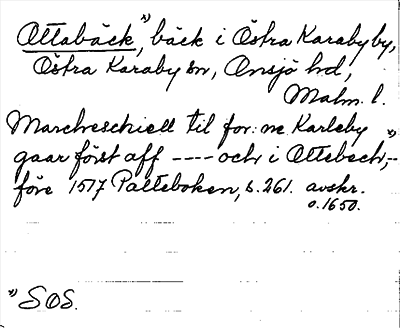 Ottabäck,*) bäck i Östra Karaby by,
Östra Karaby sn, Onsjö hd,
Malm. l.
Marchreschiell til for:ne Karleby
gaar först aff ---- och i Ottebech,-*)
före 1517 Palteboken, s. 261. avskr.
o. 1650.
*) SOS.